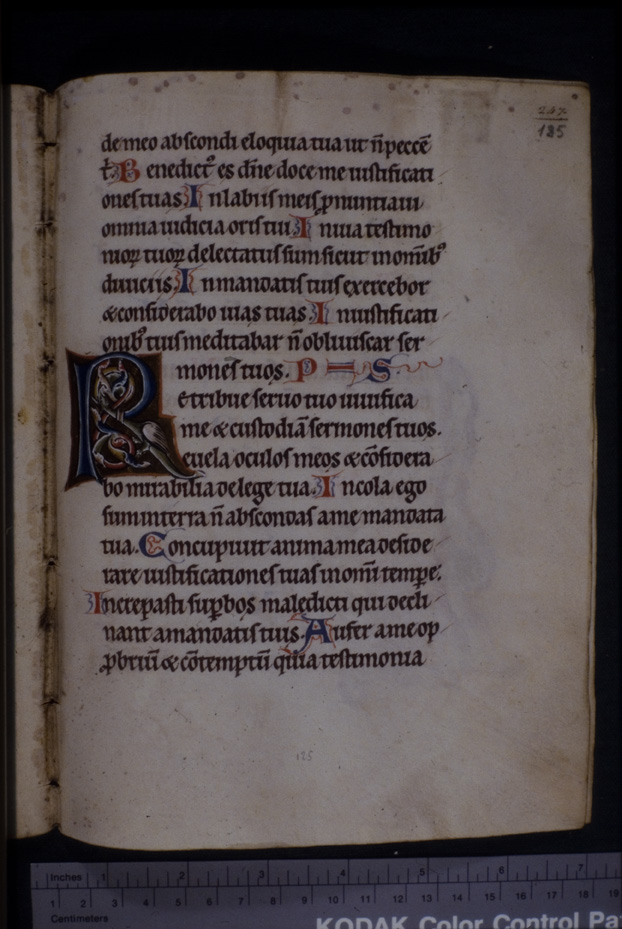 247
185
de meo abscondi eloquia tua ut n̄ peccē
t̄. Benedictꝰ es dn̄e doce me iustificati
ones tuas. In labiis meis ꝓnuntiaui
omnia iudicia oris tui. In uia testimo
nioꝝ tuoꝝ delectatus sum sicut in omībꝰ
diuiciis. In mandatis tuis exercebor
& considerabo uias tuas. In iustificati
onibꝰ tuis meditabar n̄ obliuiscar ser
mones tuos. P S
Retribue seruo tuo uiuifica
me & custodiā sermones tuos.
Reuela oculos meos & cōsidera
bo mirabilia de lege tua. Incola ego
sum in terra n̄ abscondas a me mandata
tua. Concupiuit anima mea deside
rare iustificationes tuas in omī tempe.
Increpasti suꝑbos maledicti qui decli
nant a mandatis tuis. Aufer a me op
ꝓbriū & cōtemptū quia testimonia
125
Inches 1 2 3 4 5 6 7
1 2 3 4 5 6 7 8 9 10 11 12 13 14 15 16 17 18 19
Centimeters
KODAK Color Control Pa